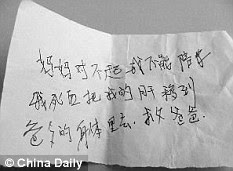 妈妈对不起我不能陪你
我死后把我的肝移到
爸爸的身体里去.救救爸爸.
© China Daily